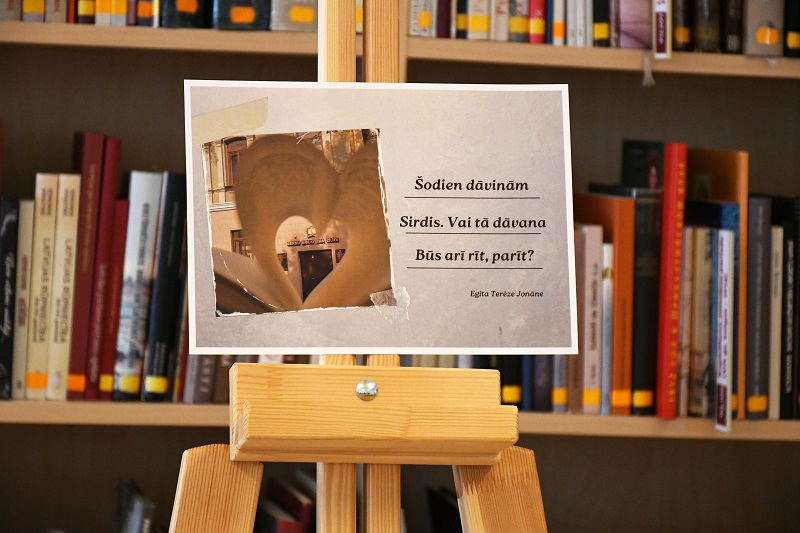 Šodien dāvinām
Sirdis. Vai tā dāvana
Būs arī rīt, parīt?
Egita Terēze Jonāne